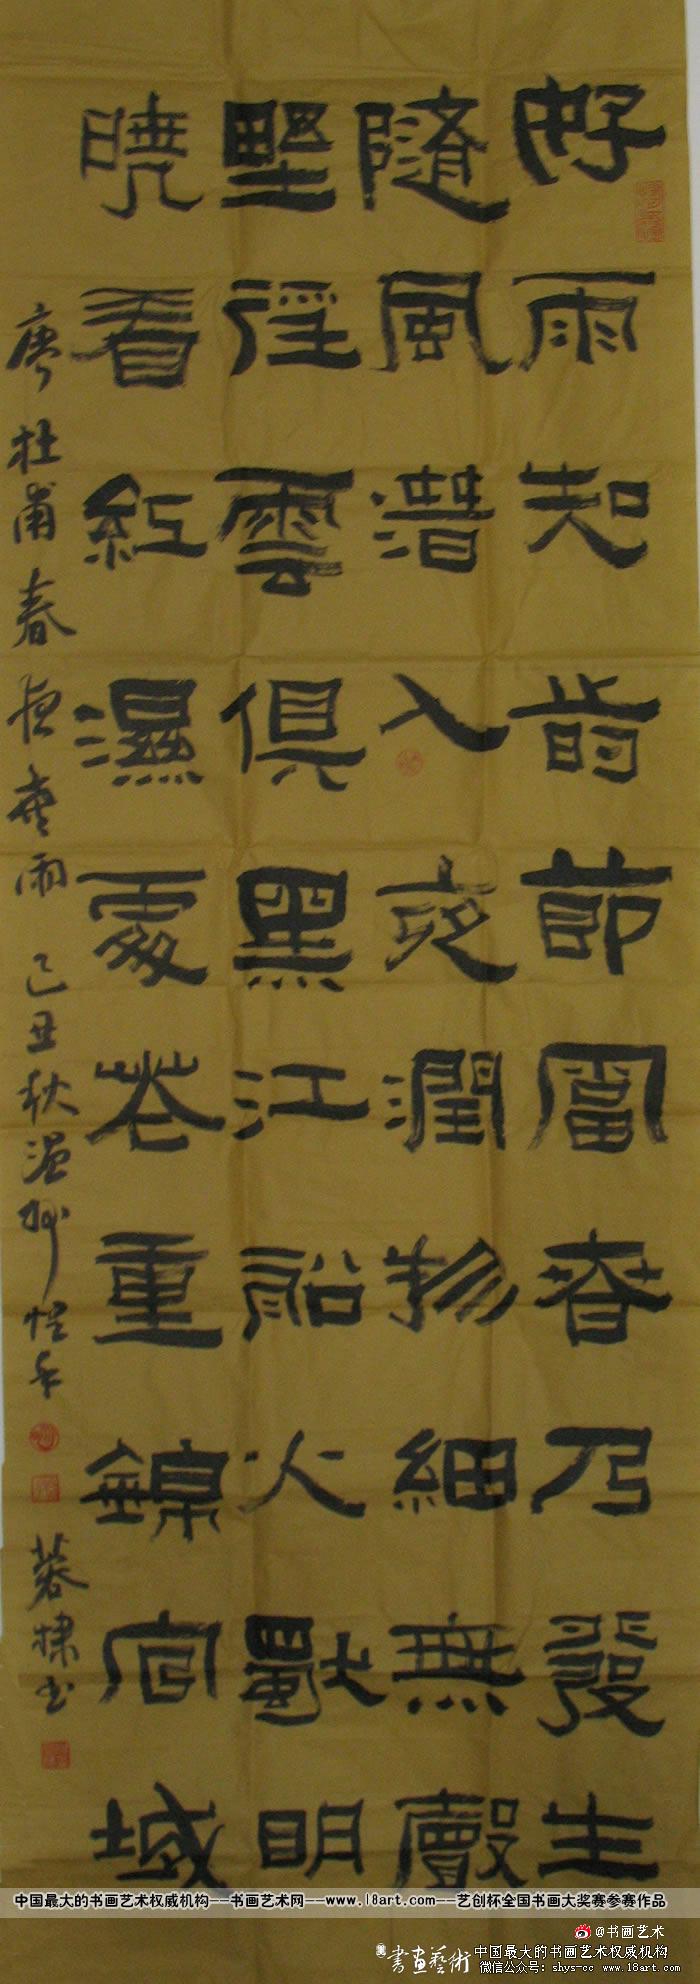 好雨知時節當春乃發生
隨風潛入夜潤物細無聲
野徑雲俱黑江船火獨明
曉看紅濕處花重錦官城
唐杜甫春夜喜雨 己丑秋温州
中国最大的书画艺术权威机构——书画艺术网——www.18art.com——艺创杯全国书画大奖赛参赛作品
@书画艺术
書画藝術 中国最大的书画艺术权威机构
微信公众号：shys-cc www.18art.com